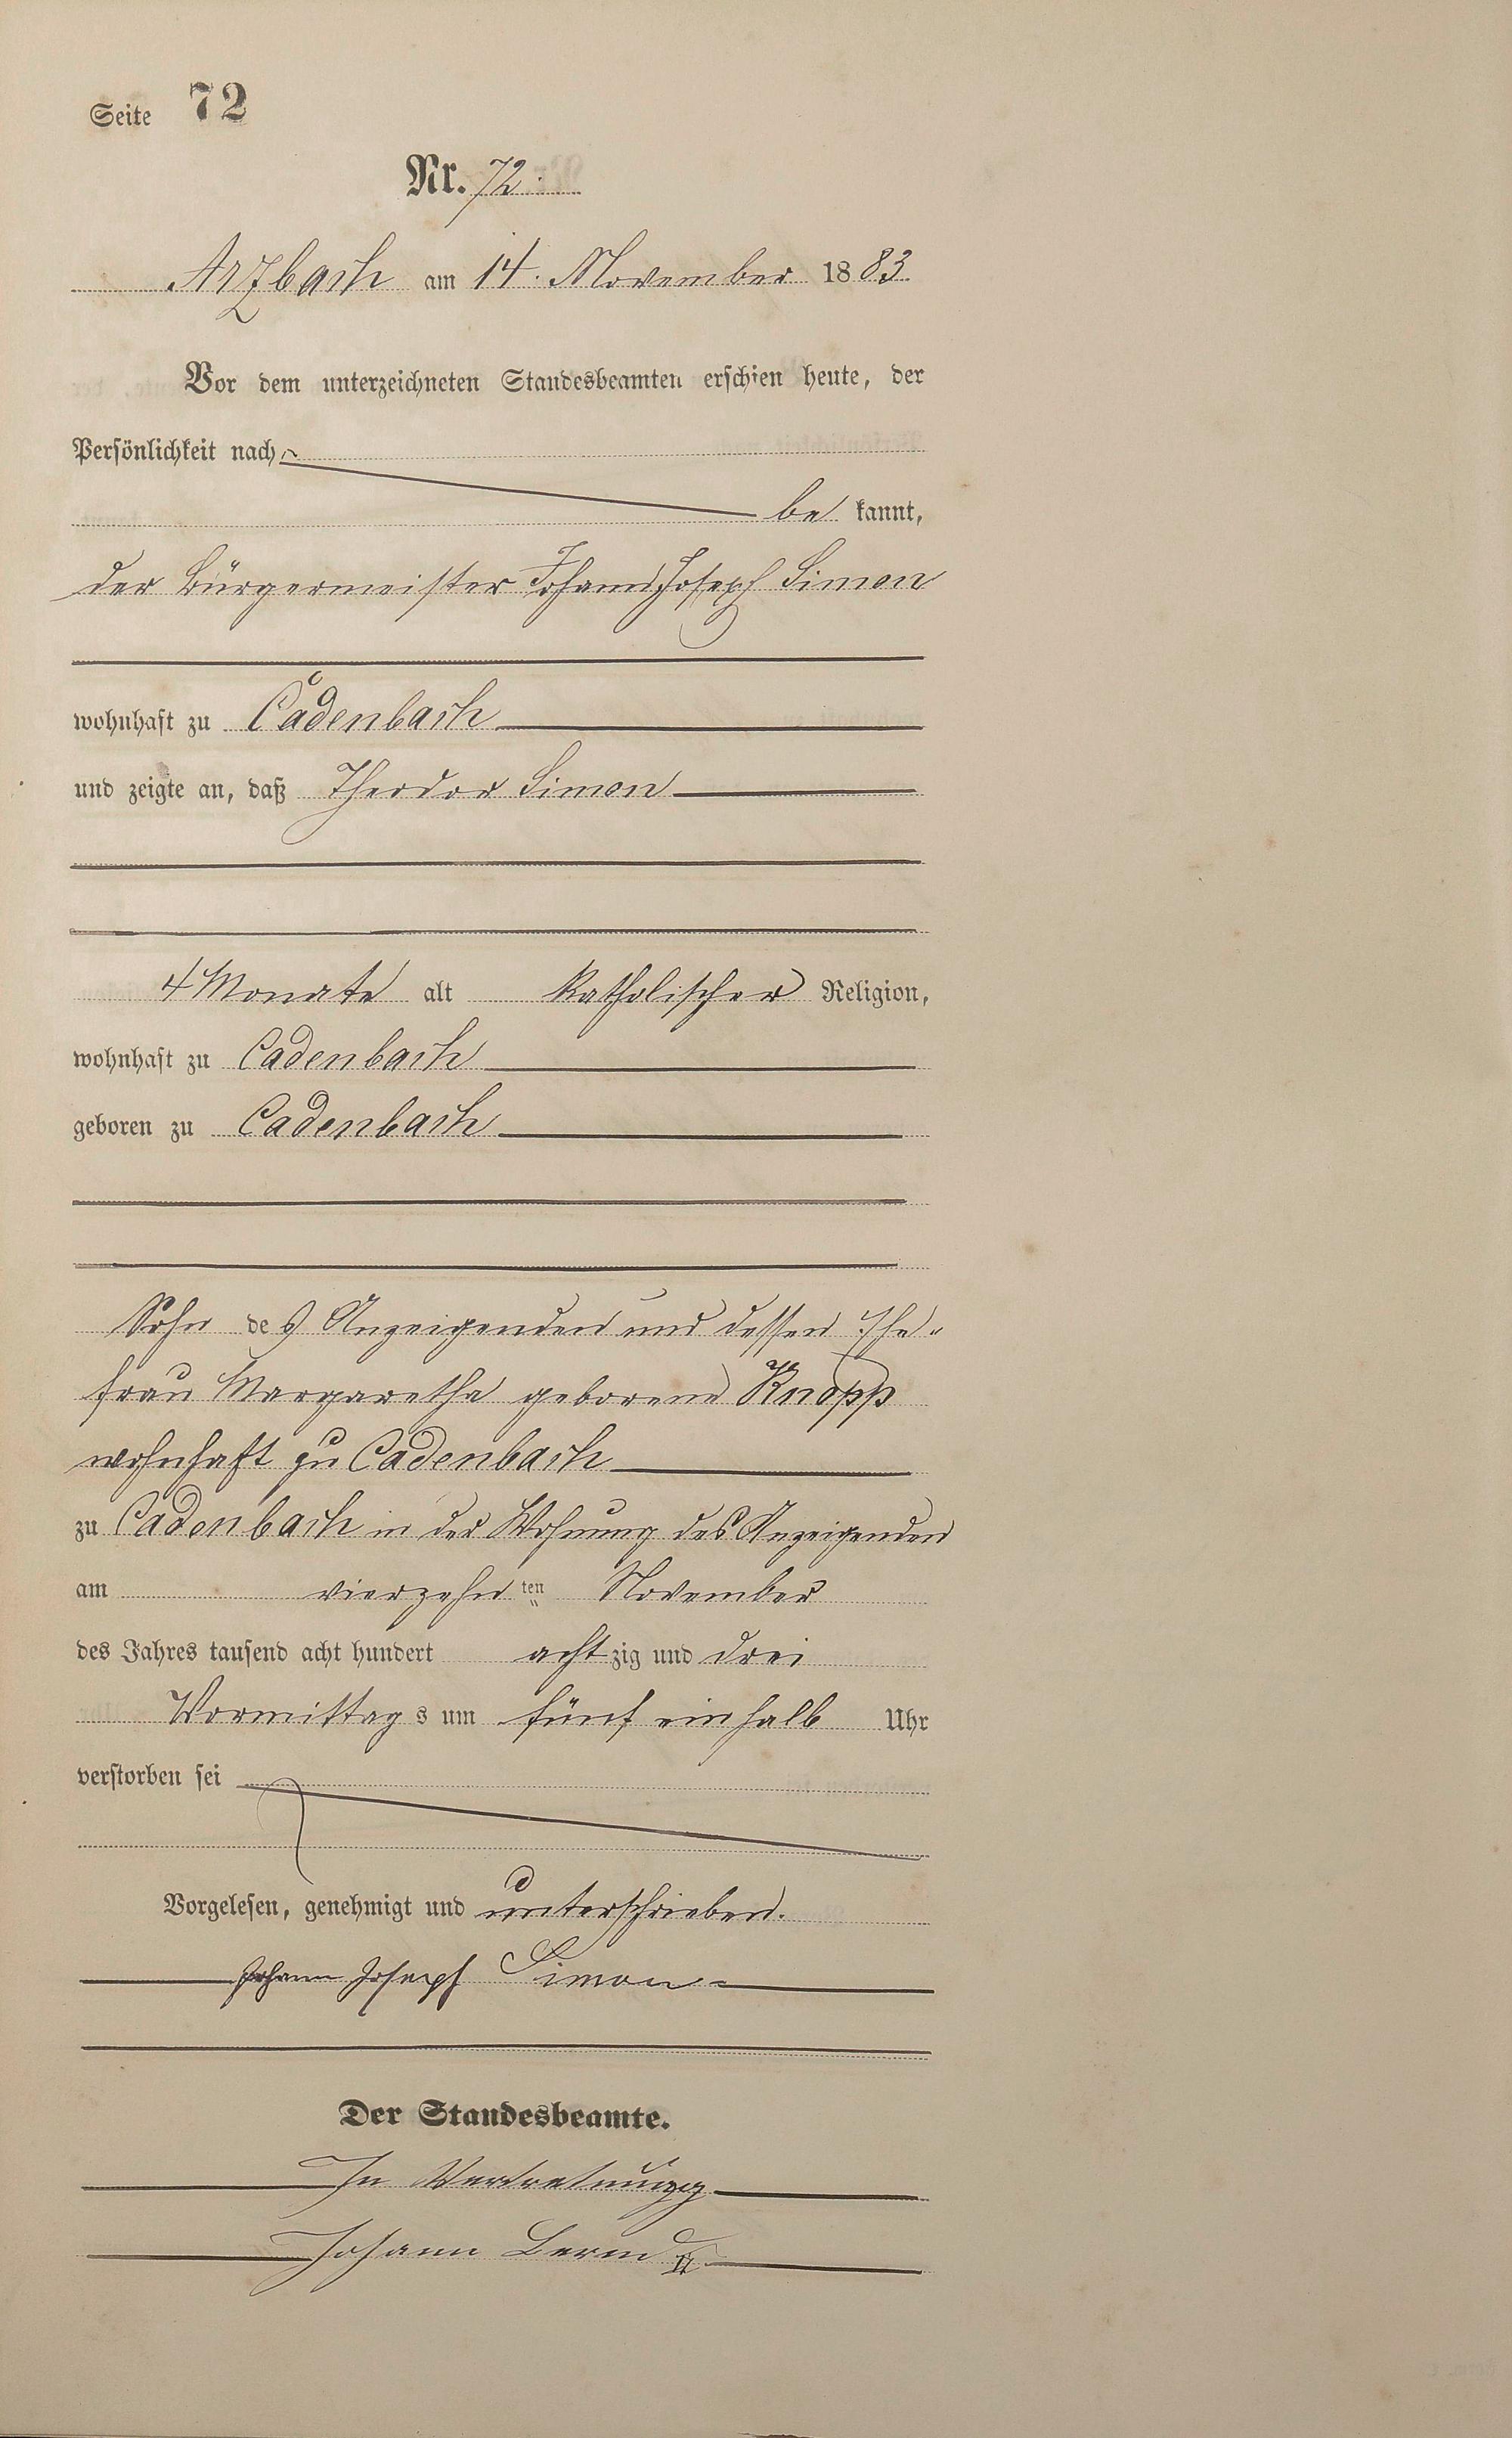 Seite 72
Nr. 72.
Arzbach am 14. November 1883
Vor dem unterzeichneten Standesbeamten erschien heute, der
Persönlichkeit nach
be kannt,
der Bürgermeister Johann Joseph Simon
wohnhaft zu Cadenbach
und zeigte an, daß Theodor Simon
4 Monate alt katholischer Religion,
wohnhaft zu Cadenbach
geboren zu Cadenbach
Sohn des Anzeigenden und dessen Ehe-
frau Margaretha geborene Knopp
wohnhaft zu Cadenbach
zu Cadenbach in der Wohnung des Anzeigenden
am vierzehnten November
des Jahres tausend acht hundert achtzig und drei
Vormittags um fünf ein halb Uhr
verstorben sei
Vorgelesen, genehmigt und unterschrieben.
Johann Joseph Simon
Der Standesbeamte.
In Vertretung
Johann